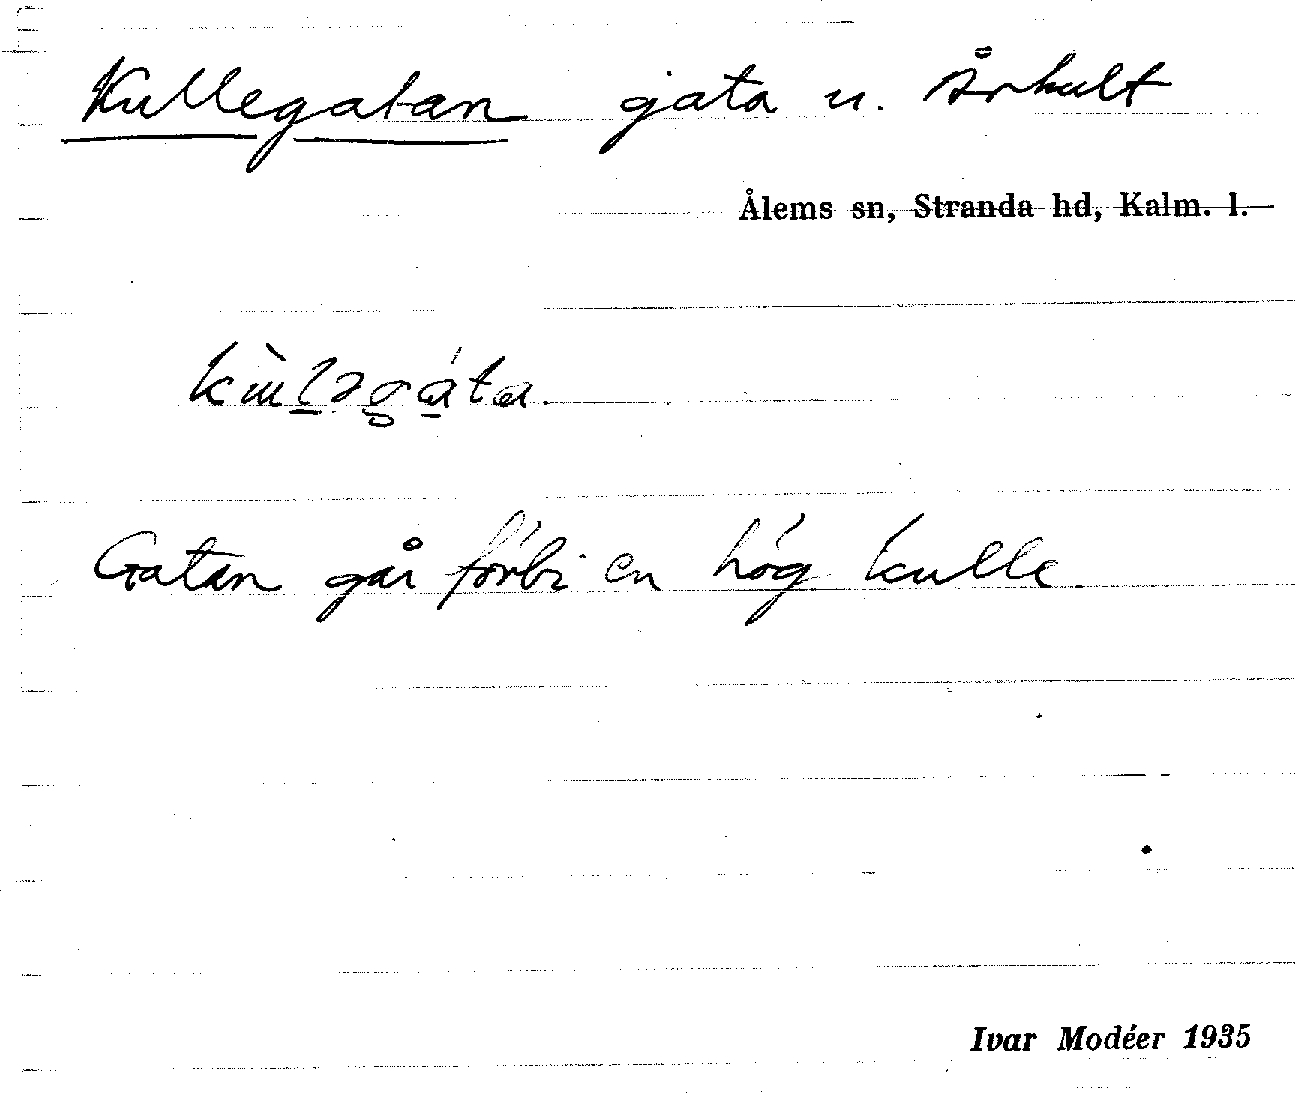 Kullegatan gata u. Århult
Ålems sn, Stranda hd, Kalm. l.
Gatan går förbi en hög kulle.
Ivar Modéer 1935